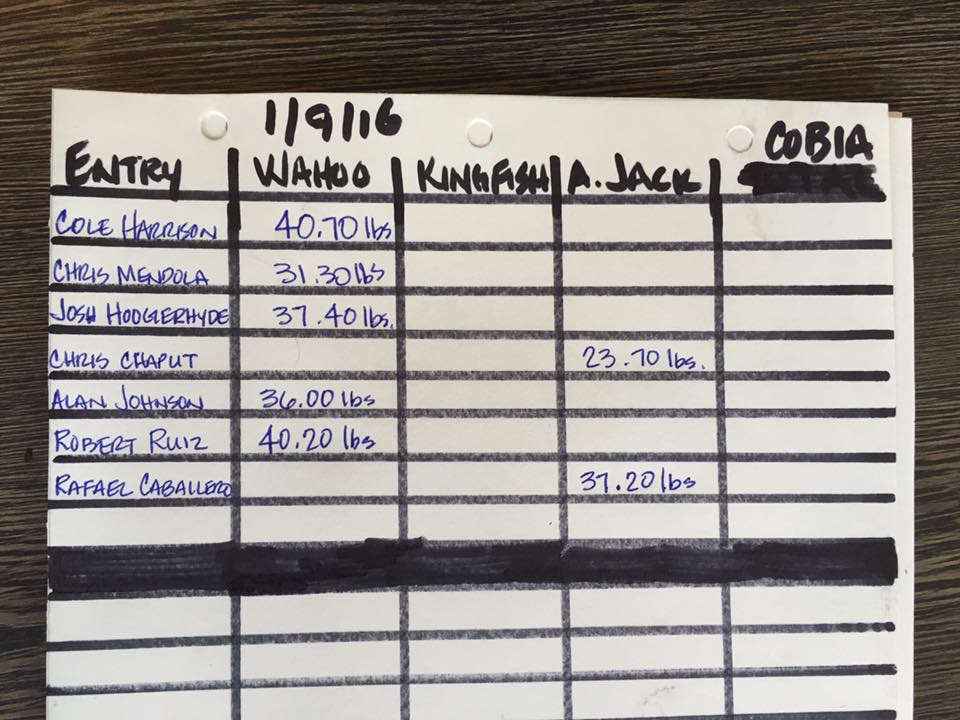 1/9/16
ENTRY WAHOO KINGFISH A. JACK COBIA
COLE HARRISON 40.70 lbs
CHRIS MENDOLA 31.30 lbs
JOSH HOOGERHYDE 37.40 lbs.
CHRIS CHAPUT 23.70 lbs.
ALAN JOHNSON 36.00 lbs
ROBERT RUIZ 40.20 lbs
RAFAEL CABALLERO 37.20 lbs